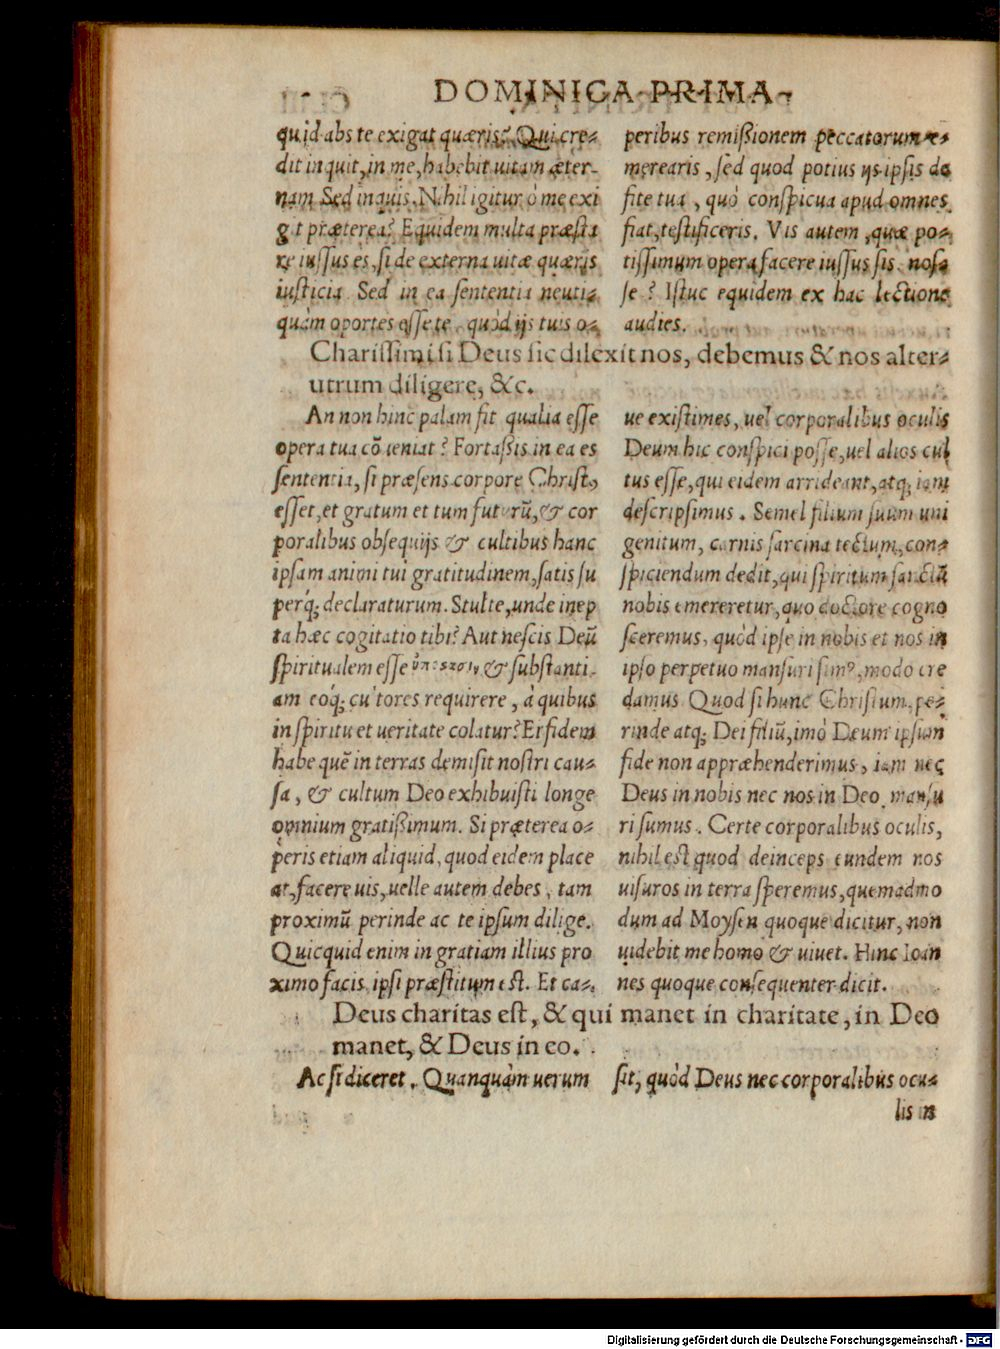 DOMINICA PRIMA
quid abs te exigat quæris? Qui cre-
dit inquit, in me, habebit uitam æter-
nam Sed inquis. Nihil igitur ò me exi
git præterea? Equidem multa præsta
re iussus es, si de externa uitæ quæris
iusticia. Sed in ea sententia neuti-
quàm oportes esse te, quòd ijs tuis o-
peribus remißionem peccatorum e-
merearis, sed quod potius ijs ipsis de
fite tua, quò conspicua apud omnes
fiat, testificeris. Vis autem, quæ po-
tissimum opera facere iussus sis nosse
se? Istuc equidem ex hac lectione
audies.
Charissimi si Deus sic dilexit nos, debemus & nos alter-
utrum diligere, &c.
An non hinc palam fit qualia esse
opera tua cōueniat? Fortaßis in ea es
sententia, si præsens corpore Christo
esset, et gratum et tum futurū, & cor
poralibus obsequijs & cultibus hanc
ipsam animi tui gratitudinem, satis su
perq; declaraturum. Stulte, unde inep
ta hæc cogitatio tibi? Aut nescis Deū
spiritualem esse & substanti-
am eoq; cultores requirere, à quibus
in spiritu et ueritate colatur? Et fidem
habe quē in terras demisit nostri cau-
sa, & cultum Deo exhibuisti longe
omnium gratißimum. Si præterea o-
peris etiam aliquid, quod eidem place
at, facere uis, uelle autem debes, tam
proximū perinde ac te ipsum dilige.
Quicquid enim in gratiam illius pro
ximo facis, ipsi præstitum est. Et ca-
ue existimes, uel corporalibus oculis
Deum hic conspici posse, uel alios cul
tus esse, qui eidem arrideant, atq; iam
descripsimus. Semel filium suum uni
genitum, carnis sarcina tectum, con-
spiciendum dedit, qui spiritum sanctū
nobis emereretur, quo doctore cogno
sceremus, quòd ipse in nobis et nos in
ipso perpetuo mansuri simꝰ, modo cre
damus Quod si hunc Christum, pe-
rinde atq; Dei filiū, imò Deum ipsum
fide non appræhenderimus, iam nec
Deus in nobis nec nos in Deo mansu
ri sumus. Certe corporalibus oculis,
nihil est quod deinceps eundem nos
uisuros in terra speremus, quemadmo
dum ad Moysen quoque dicitur, non
uidebit me homo & uiuet. Hinc Ioan
nes quoque consequenter dicit.
Deus charitas est, & qui manet in charitate, in Deo
manet, & Deus in eo.
Ac si diceret. Quanquàm uerum
sit, quòd Deus nec corporalibus ocu-
lis in
Digitalisierung gefördert durch die Deutsche Forschungsgemeinschaft - DFG